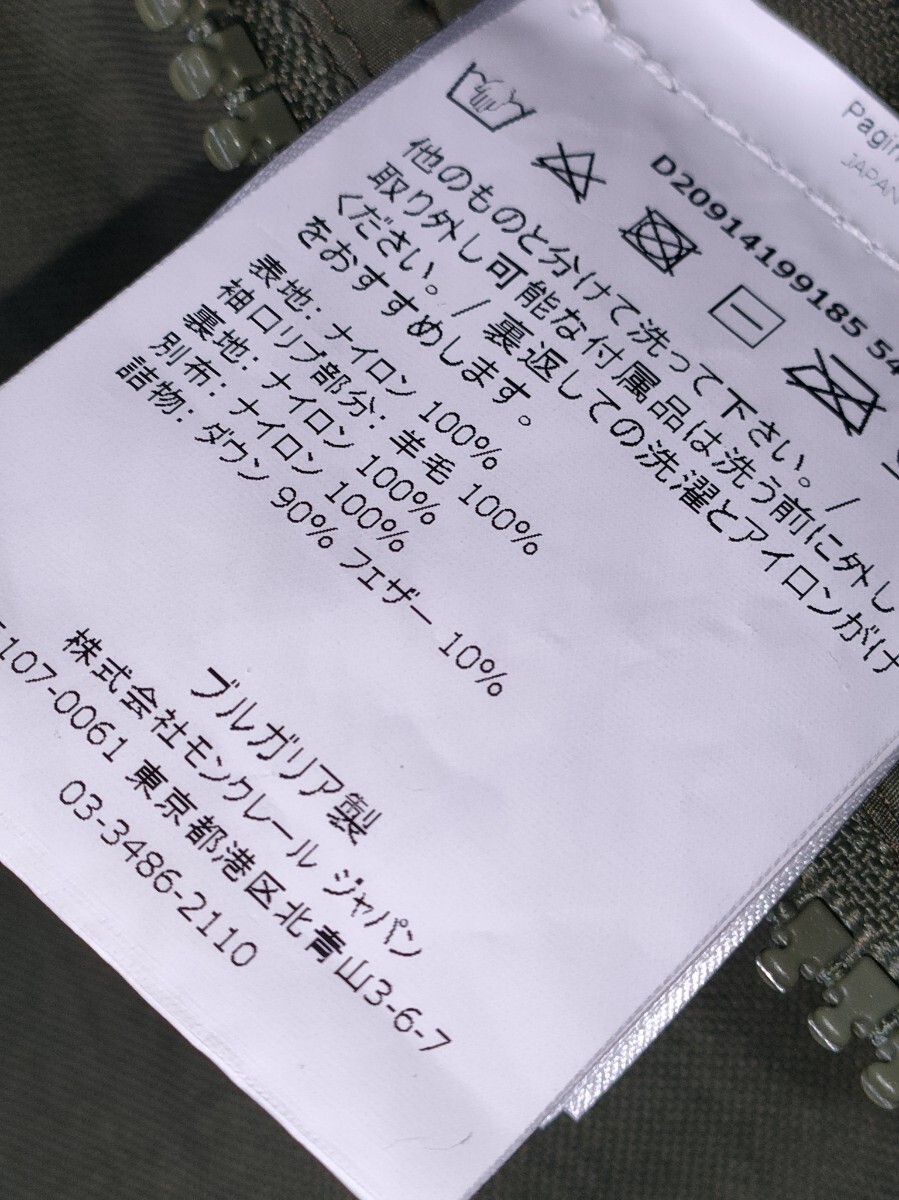 Pagin
JAPAN
D2091419918554
他のものと分けて洗って下さい。/
取り外し可能な付属品は洗う前に外し
ください。/ 裏返しての洗濯とアイロンがけ
をおすすめします。
表地: ナイロン 100%
袖口リブ部分: 羊毛 100%
裏地: ナイロン 100%
別布: ナイロン 100%
詰物: ダウン 90% フェザー 10%
ブルガリア製
株式会社モンクレール ジャパン
107-0061 東京都港区北青山3-6-7
03-3486-2110